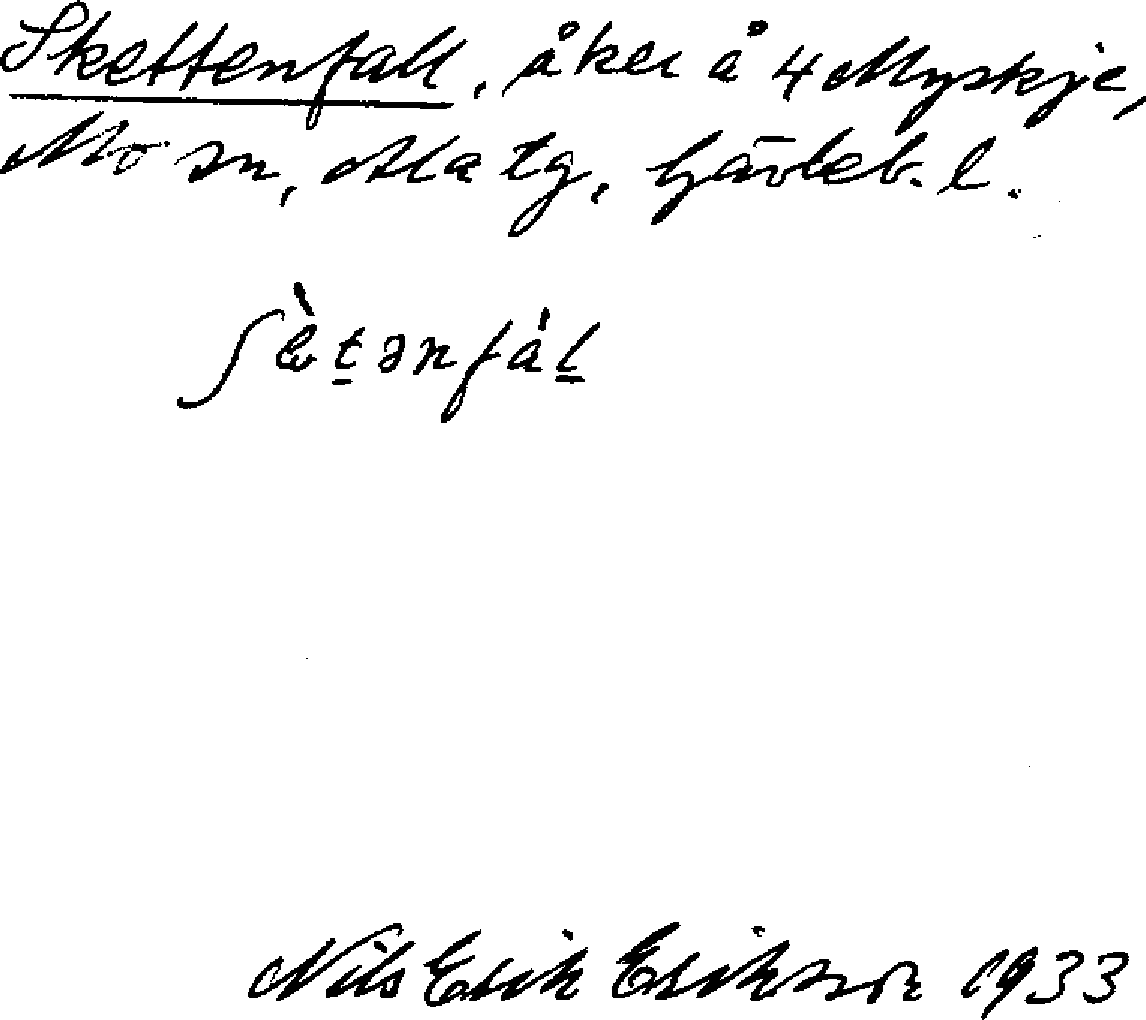 Skettenfall, åker å 4 Myskje,
Mo sn, Ala tg, Gävleb. l.
ʃὲt̲ənfál̲
Nils Erik Erikson 1933